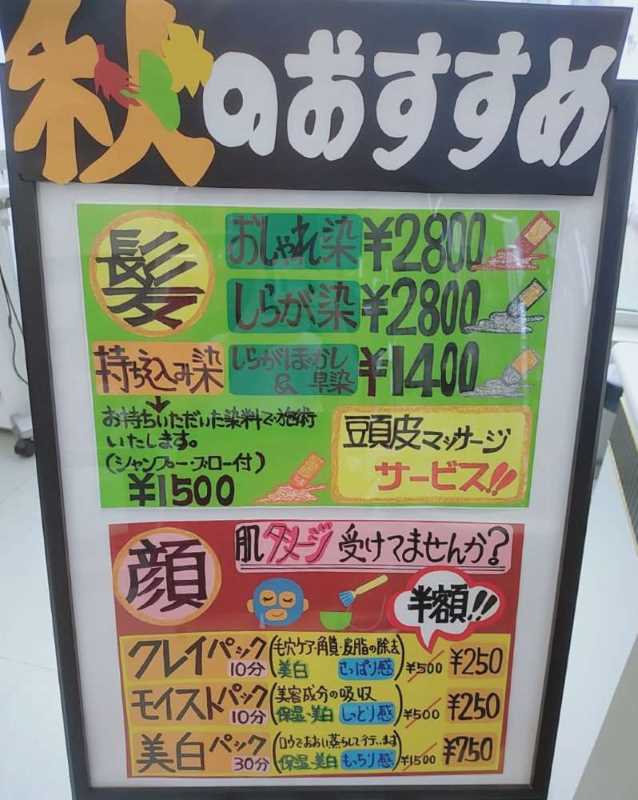 秋のおすすめ
髪
おしゃれ染 ¥2800
しらが染 ¥2800
しらがぼかし & 早染 ¥1400
持ち込み染
お持ちいただいた染料で施術
いたします。
(シャンプー・ブロー付)
¥1500
頭皮マッサージ
サービス!!
顔
肌ダメージ 受けてませんか?
半額!!
クレイパック 10分 (毛穴ケア・角質・皮脂の除去 美白 さっぱり感) ¥500 ¥250
モイストパック 10分 (美容成分の吸収 保湿・美白 しっとり感) ¥500 ¥250
美白パック 30分 (ロウでおおい蒸らして行います 保湿・美白 もっちり感) ¥1500 ¥750